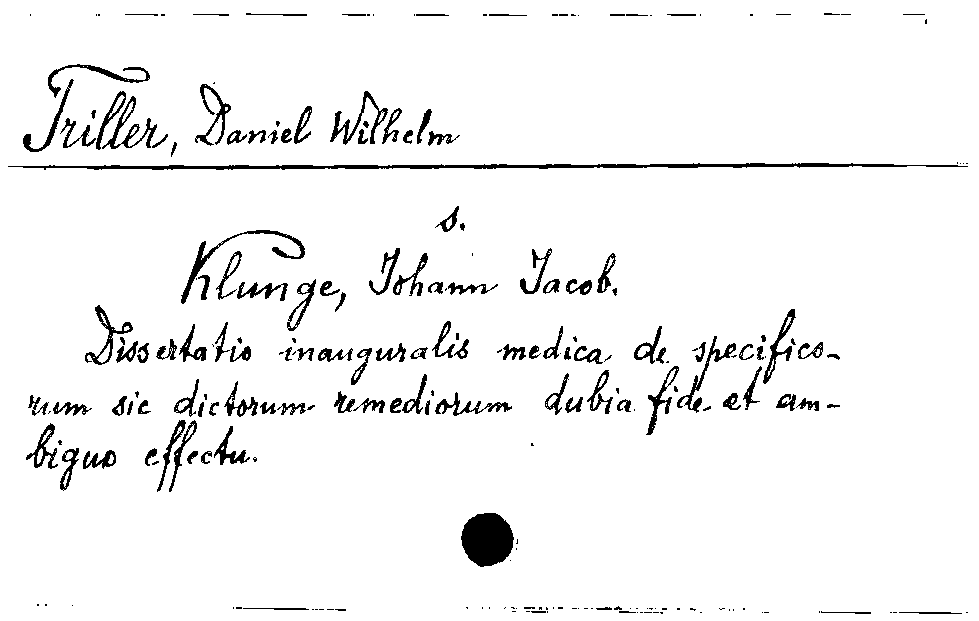 Triller, Daniel Wilhelm
s.
Klunge, Johann Jacob.
Dissertatio inauguralis medica de specifico-
rum sic dictorum remediorum dubia fide et am-
biguo effectu.